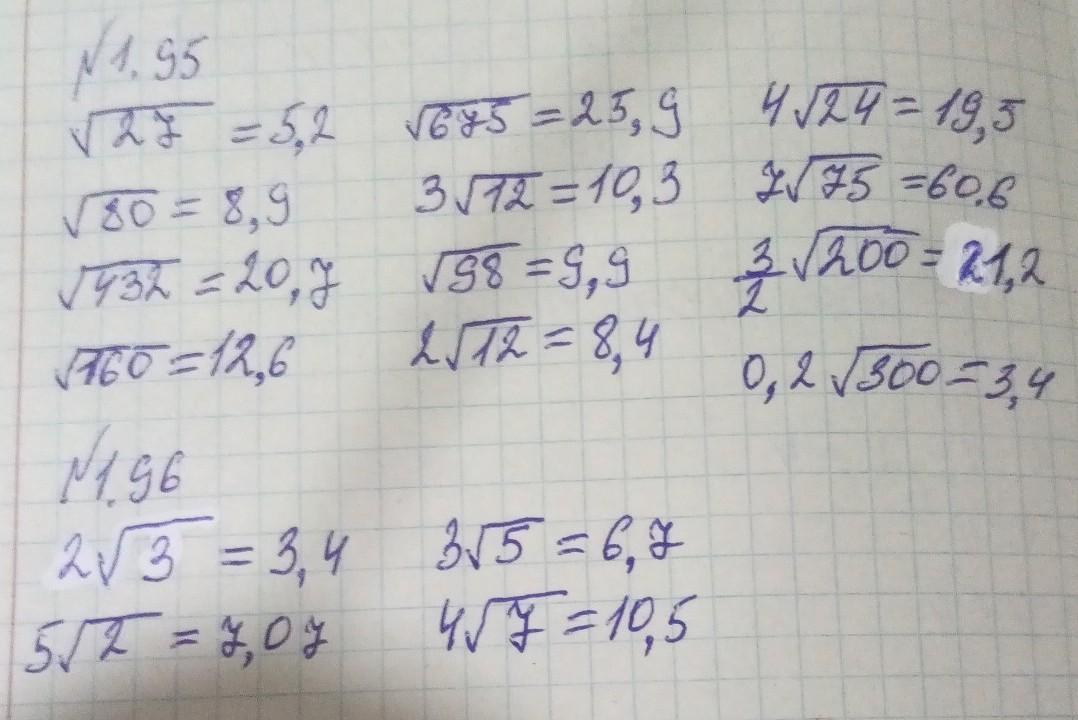 №1.95
√27 = 5,2
√80 = 8,9
√432 = 20,7
√160 = 12,6
√675 = 25,9
3√12 = 10,3
√98 = 9,9
2√12 = 8,4
4√24 = 19,5
7√75 = 60.6
3/2 √200 = 21,2
0,2 √300 = 3,4
№1.96
2√3 = 3,4
5√2 = 7,07
3√5 = 6,7
4√7 = 10,5